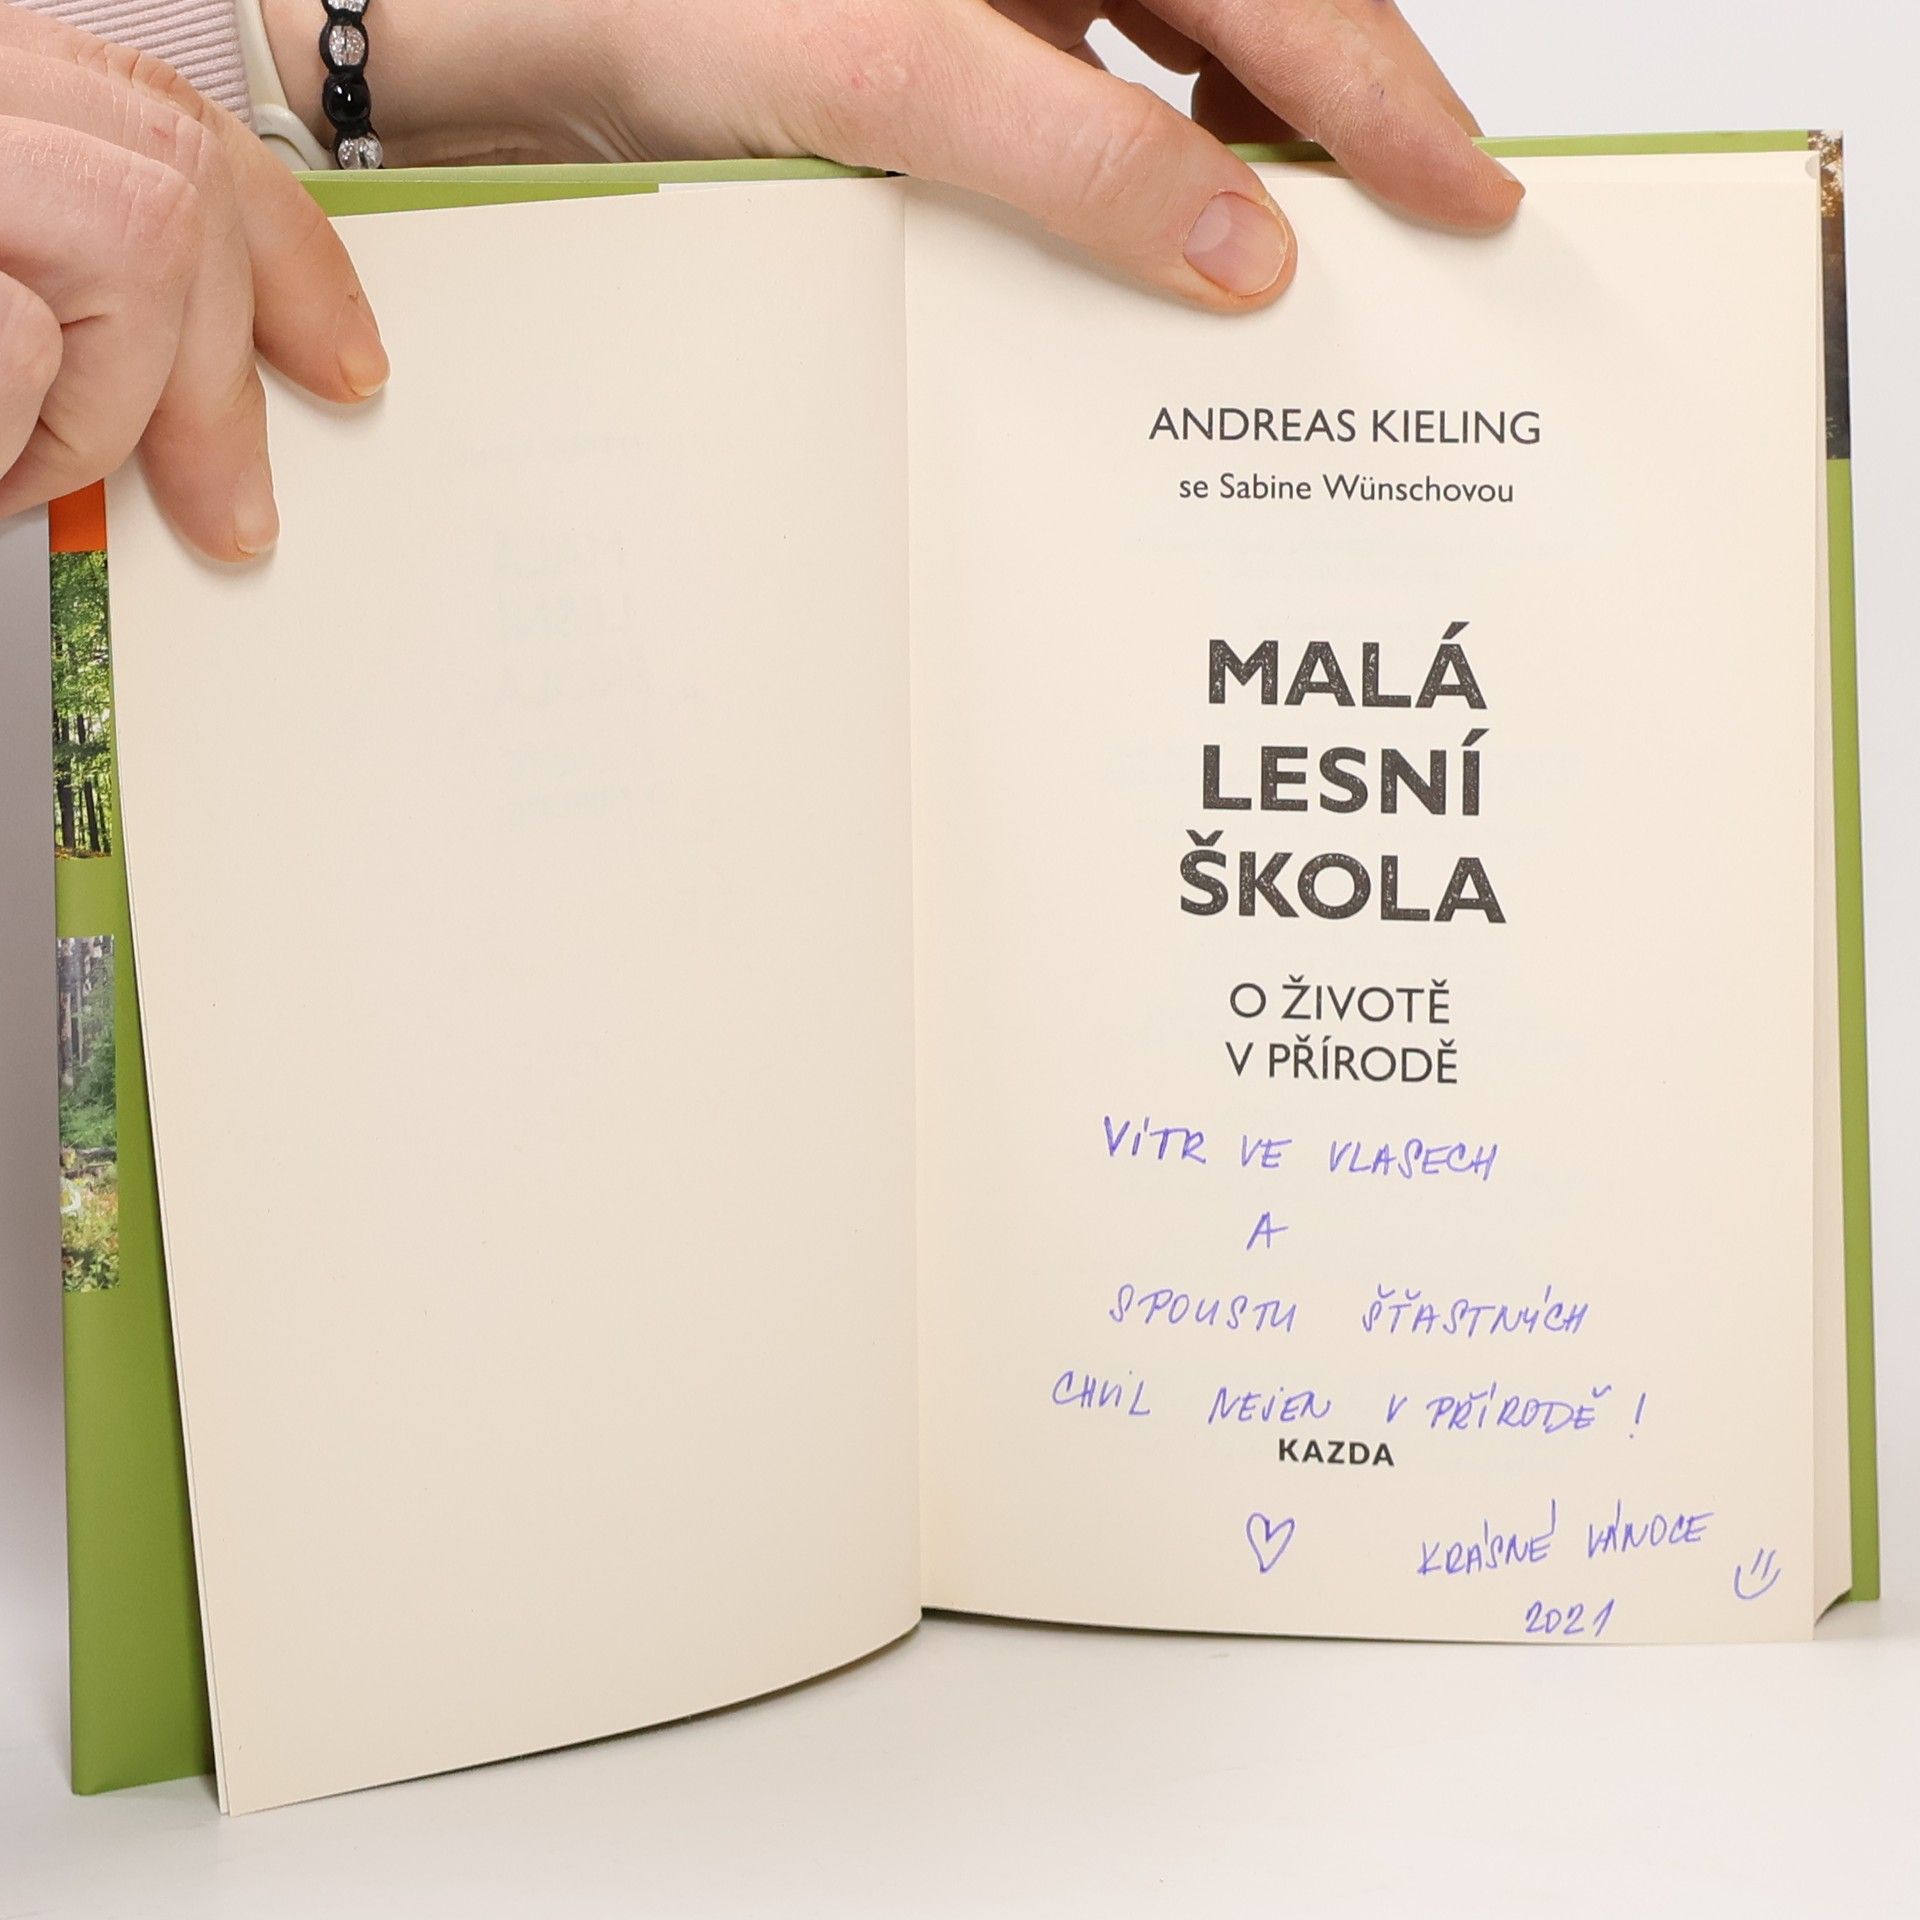 ANDREAS KIELING
se Sabine Wünschovou
MALÁ
LESNÍ
ŠKOLA
O ŽIVOTĚ
V PŘÍRODĚ
VÍTR VE VLASECH
A
SPOUSTU ŠŤASTNÝCH
CHVIL NEJEN V PŘÍRODĚ!
KAZDA
KRÁSNÉ VÁNOCE
2021